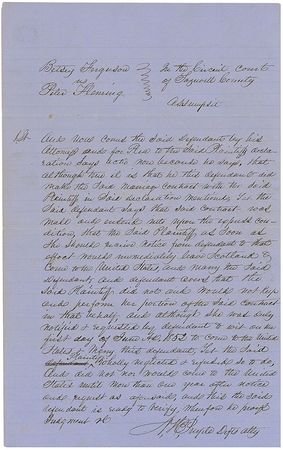 Betsey Ferguson
vs
Peter Fleming
In the Circuit court
of Tazwell County
Assumpsit
And now comes the Said Defendant by his
Attorney and for Plea to the Said Plaintiffs decla-
ration says actio non because he says, that
although true it is that he this defendant did
make the Said Marriage contract with the Said
Plaintiff in Said declaration mentioned, Yet the
Said defendant says that Said Contract was
made and entered into upon the express con-
dition, that the Said Plaintiff as Soon as
She Should receive Notice from defendant to that
effect would immediately leave Scotland &
Come to the United States, and marry the Said
Defendant, and defendant avers that the
Said Plaintiff did not and would not try
and perform her portion of the Said Contract
in that behalf, and although she was duly
notified & requested by defendant to wit on the
first day of June AD 1853 to come to the United
States & Marry this defendant, Yet the Said
Plaintiff wholly neglected & refused so to do,
And did not nor would come to the United
States until more than one year after notice
and request as aforesaid, and this the Said
defendant is ready to verify, wherefore he prays
Judgment &c
Defts atty